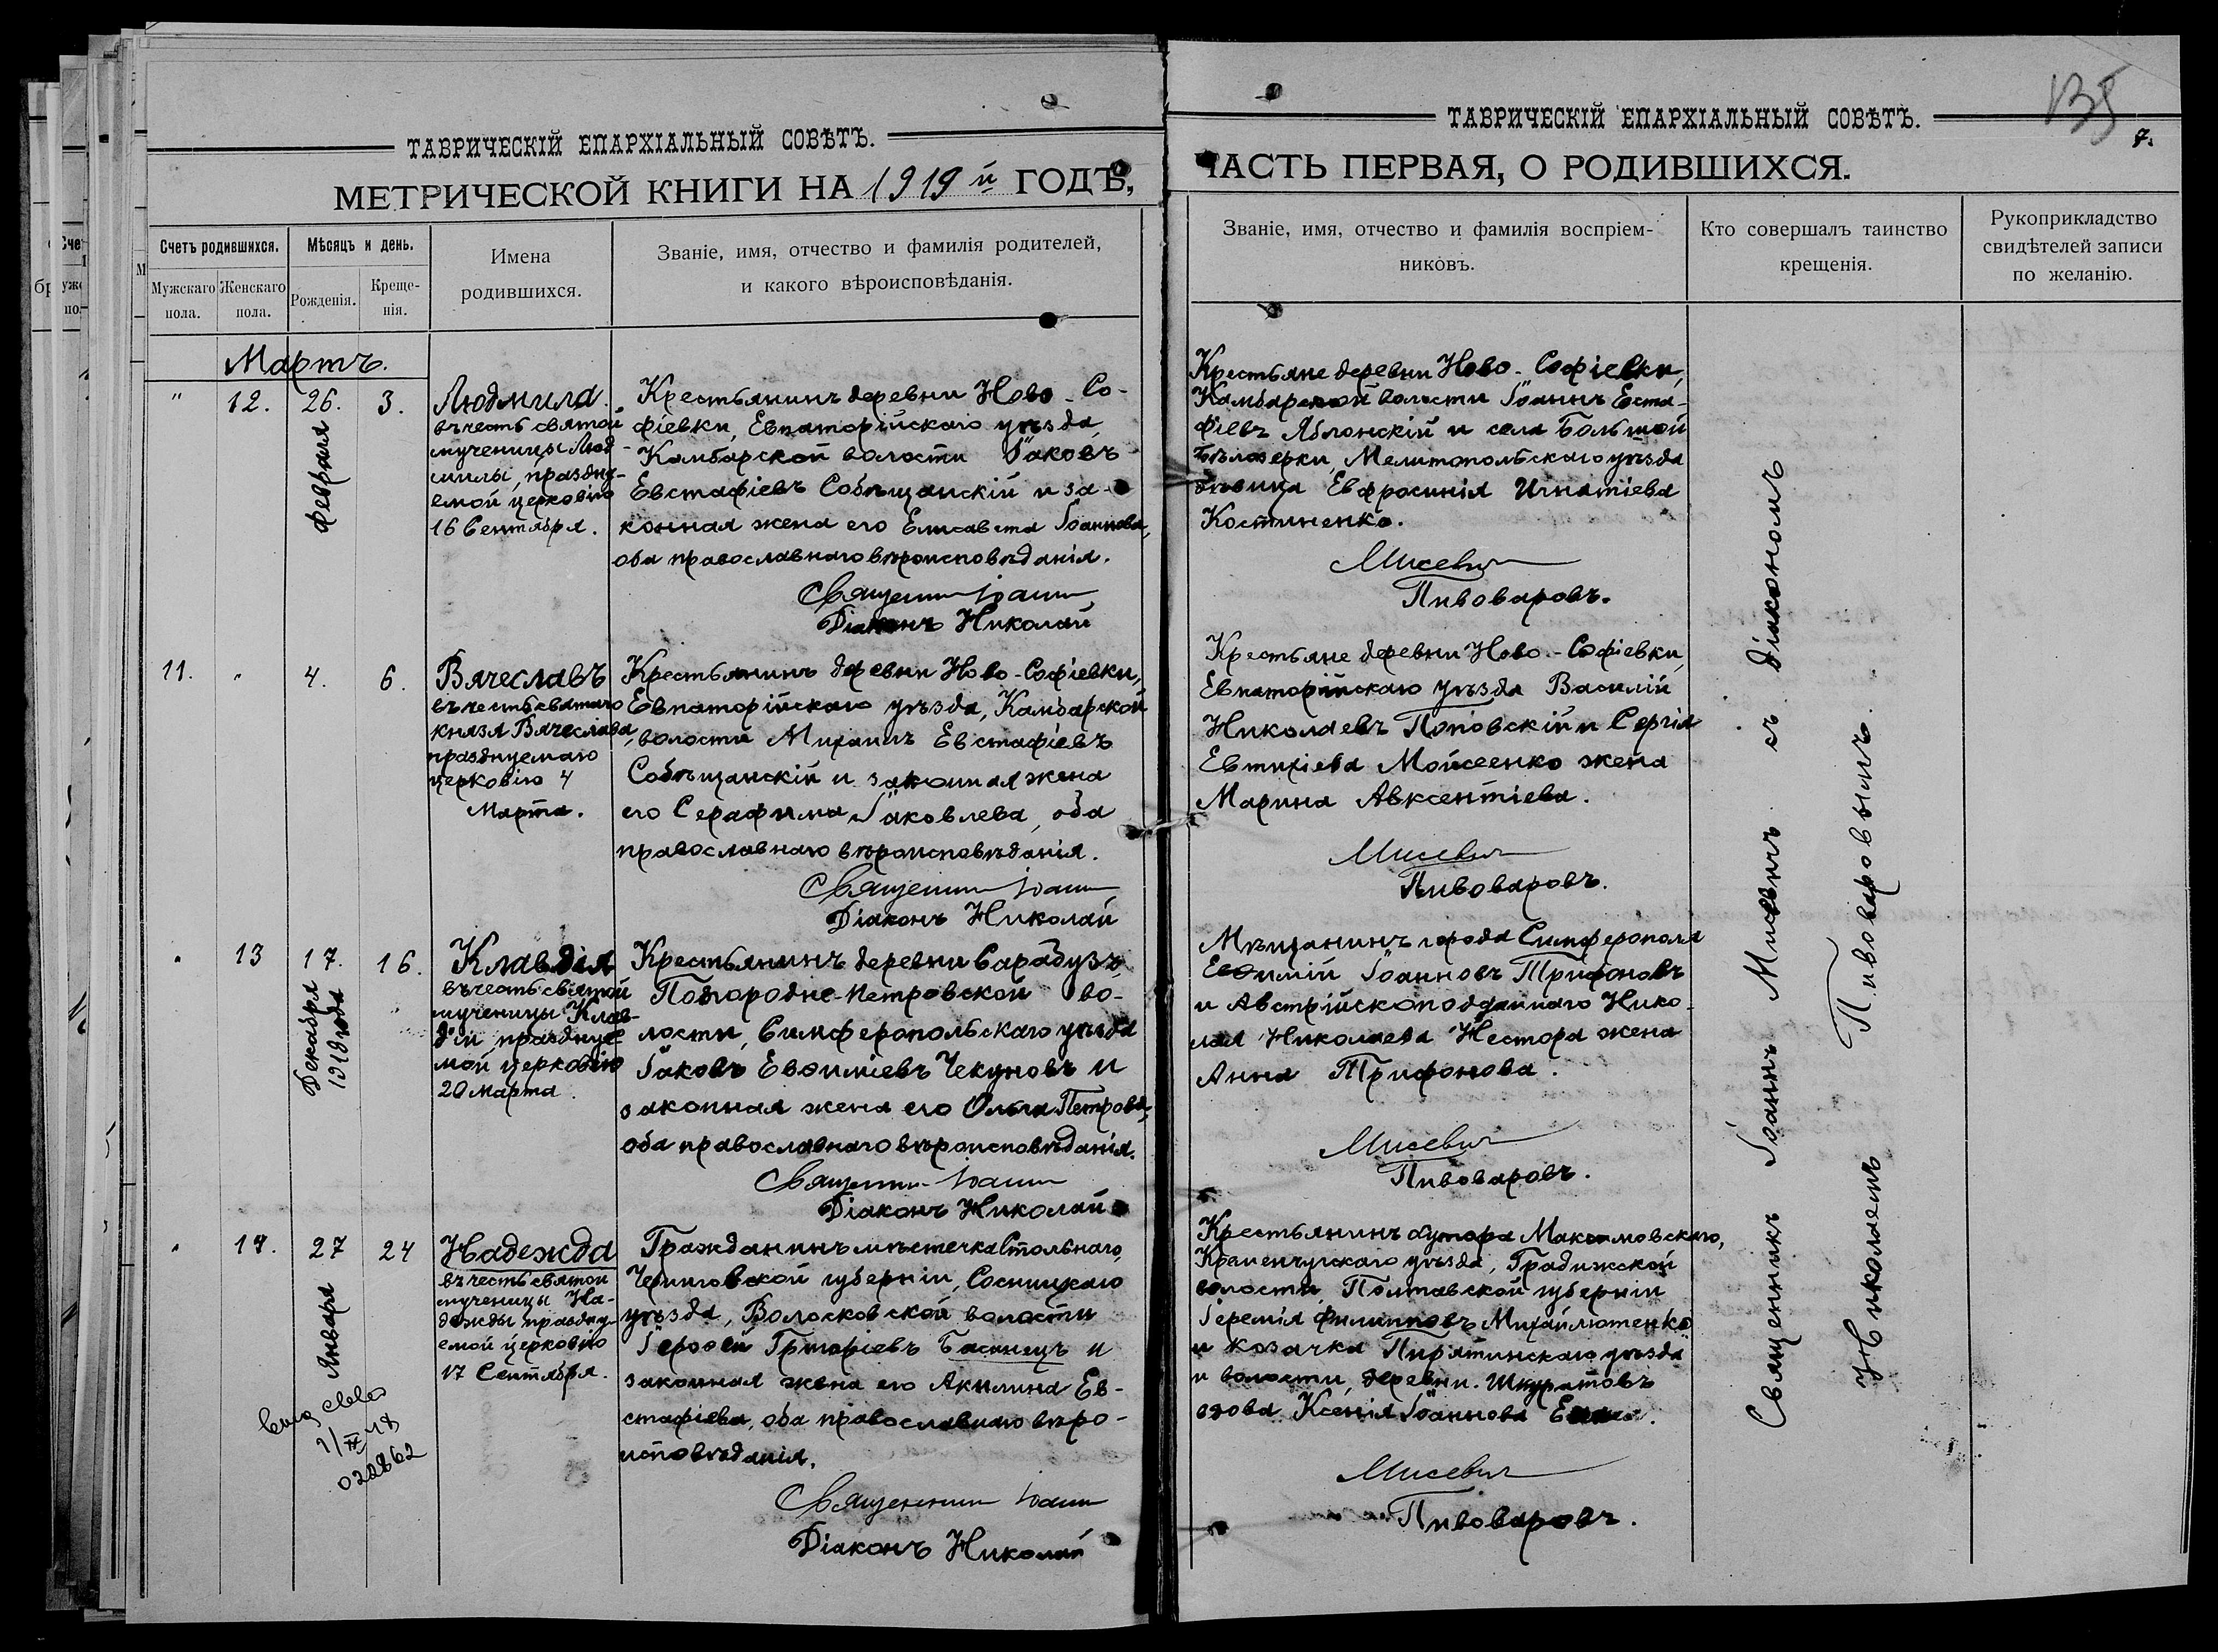 ТАВРИЧЕСКІЙ ЕПАРХІАЛЬНЫЙ СОВѢТЪ.
МЕТРИЧЕСКОЙ КНИГИ НА 1919й ГОДЪ,
Счетъ родившихся.
Мужскаго пола.
Женскаго пола.
Мѣсяцъ и день.
Рожденія.
Креще-
нія.
Имена
родившихся.
Званіе, имя, отчество и фамилія родителей,
и какого вѣроисповѣданія.
Мартъ.
" 12. 26. 3.
Февраля
Людмила.
въ честь святой
мученицы Люд-
милы, праздну-
емой церковію
16 Сентября.
Крестьянинъ деревни Ново-Со-
фіевки, Евпаторійскаго уѣзда,
Камбарской волости Іаковъ
Евстафіевъ Собѣщанскій и за-
конная жена его Елисавета Іоаннова,
оба православнаго вѣроисповѣданія.
Священникъ Іоаннъ
Діаконъ Николай
11. " 4. 6.
Вячеславъ
въ честь святаго
князя Вячеслава,
празднуемаго
церковію 4
Марта.
Крестьянинъ деревни Ново-Софіевки,
Евпаторійскаго уѣзда, Камбарской
волости Михаилъ Евстафіевъ
Собѣщанскій и законная жена
его Серафима Іаковлева, оба
православнаго вѣроисповѣданія.
Священникъ Іоаннъ
Діаконъ Николай
" 13 17. 16.
Декабря
1918 года
Клавдія
въ честь святой
мученицы Клав-
діи, праздную
мой церковію
20 Марта.
Крестьянинъ деревни Сарабузъ,
Подгородне-Петровской во-
лости, Симферопольскаго уѣзда
Іаковъ Евѳиміевъ Чекуновъ и
законная жена его Ольга Петрова,
оба православнаго вѣроисповѣданія.
Священникъ Іоаннъ
Діаконъ Николай
" 14. 27 24
Января
Надежда
въ честь святой
мученицы На-
дежды праздну-
емой церковію
17 Сентября.
Гражданинъ мѣстечка Стольнаго,
Черниговской губерніи, Сосницкаго
уѣзда, Волосковской волости
Іероѳей Григоріевъ Басанецъ и
законная жена его Акилина Ев-
стафіева, оба православнаго вѣро-
исповѣданія.
Священникъ Іоаннъ
Діаконъ Николай
022862
ТАВРИЧЕСКІЙ ЕПАРХІАЛЬНЫЙ СОВѢТЪ.
135
7.
ЧАСТЬ ПЕРВАЯ, О РОДИВШИХСЯ.
Званіе, имя, отчество и фамилія воспріем-
никовъ.
Кто совершалъ таинство
крещенія.
Рукоприкладство
свидѣтелей записи
по желанію.
Крестьяне деревни Ново-Софіевки,
Камбарской волости Іоаннъ Евста-
фіевъ Яблонскій и села Большой
Бѣлозерки, Мелитопольскаго уѣзда
дѣвица Евфросинія Игнатіева
Костиненко.
Мисевичъ
Пивоваровъ.
Крестьяне деревни Ново-Софіевки,
Евпаторійскаго уѣзда Василій
Николаевъ Поповскій и Сергія
Евтихіева Мойсеенко жена
Марина Авксентіева.
Мисевичъ
Пивоваровъ.
Мѣщанинъ города Симферополя
Евѳимій Іоанновъ Трифоновъ
и Австрійскоподданнаго Нико-
лая Николаева Нестора жена
Анна Трифонова.
Мисевичъ
Пивоваровъ.
Крестьянинъ хутора Максимовскаго,
Кременчугскаго уѣзда, Градижской
волости, Полтавской губерніи
Іеремія Филипповъ Михайлютенко
и козачка Пирятинскаго уѣзда
и волости, деревни Шкуратовъ
вдова Ксенія Іоаннова
Мисевичъ
Пивоваровъ.
Священникъ Іоаннъ Мисевичъ съ діакономъ
Николаемъ Пивоваровымъ.